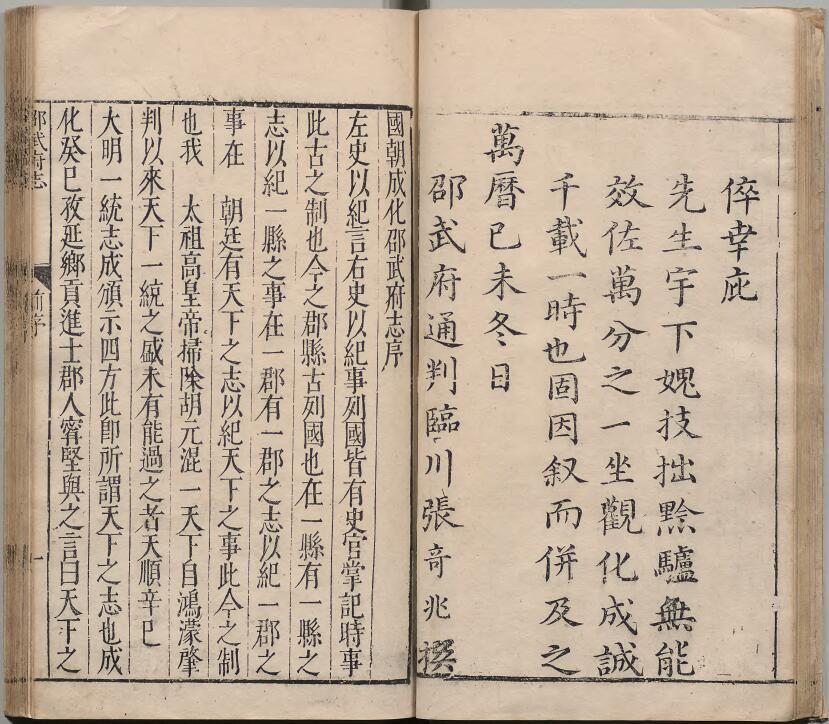 倅幸庇
先生宇下媿技拙黔驢無能
效佐萬分之一坐觀化成誠
千載一時也固因叙而併及之
萬曆己未冬日
邵武府通判臨川張奇兆撰
國朝成化邵武府志序
左史以紀言右史以紀事列國皆有史官掌記時事
此古之制也今之郡縣古列國也在一縣有一縣之
志以紀一縣之事在一郡有一郡之志以紀一郡之
事在 朝廷有天下之志以紀天下之事此今之制
也我 太祖高皇帝掃除胡元混一天下自鴻濛肇
判以來天下一統之盛未有能過之者天順辛巳
大明一統志成頒示四方此即所謂天下之志也成
化癸巳孜延鄉貢進士郡人甯堅與之言曰天下之
邵武府志 前序 一